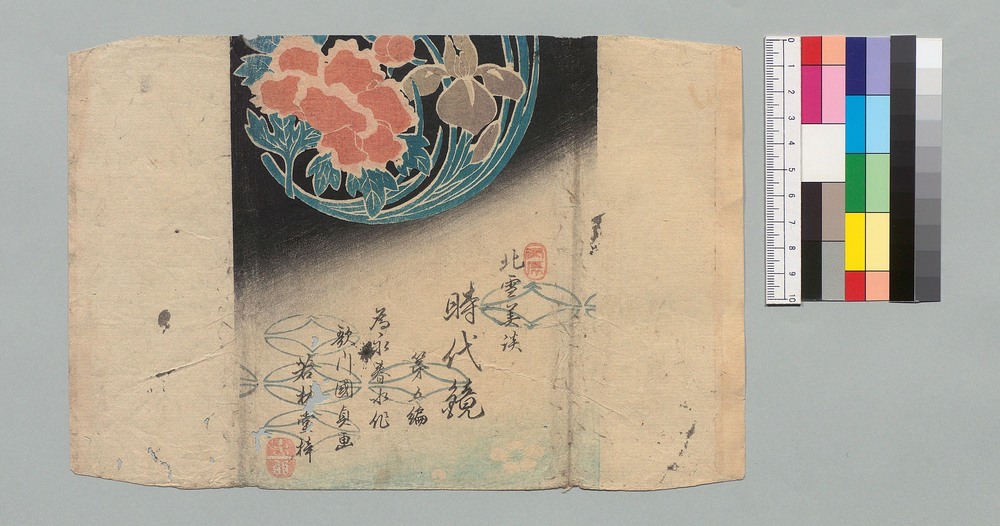 北雪美談
時代鏡
第五編
為永春水作
歌川國貞画
若林堂梓
0
1
2
3
4
5
6
7
8
9
10